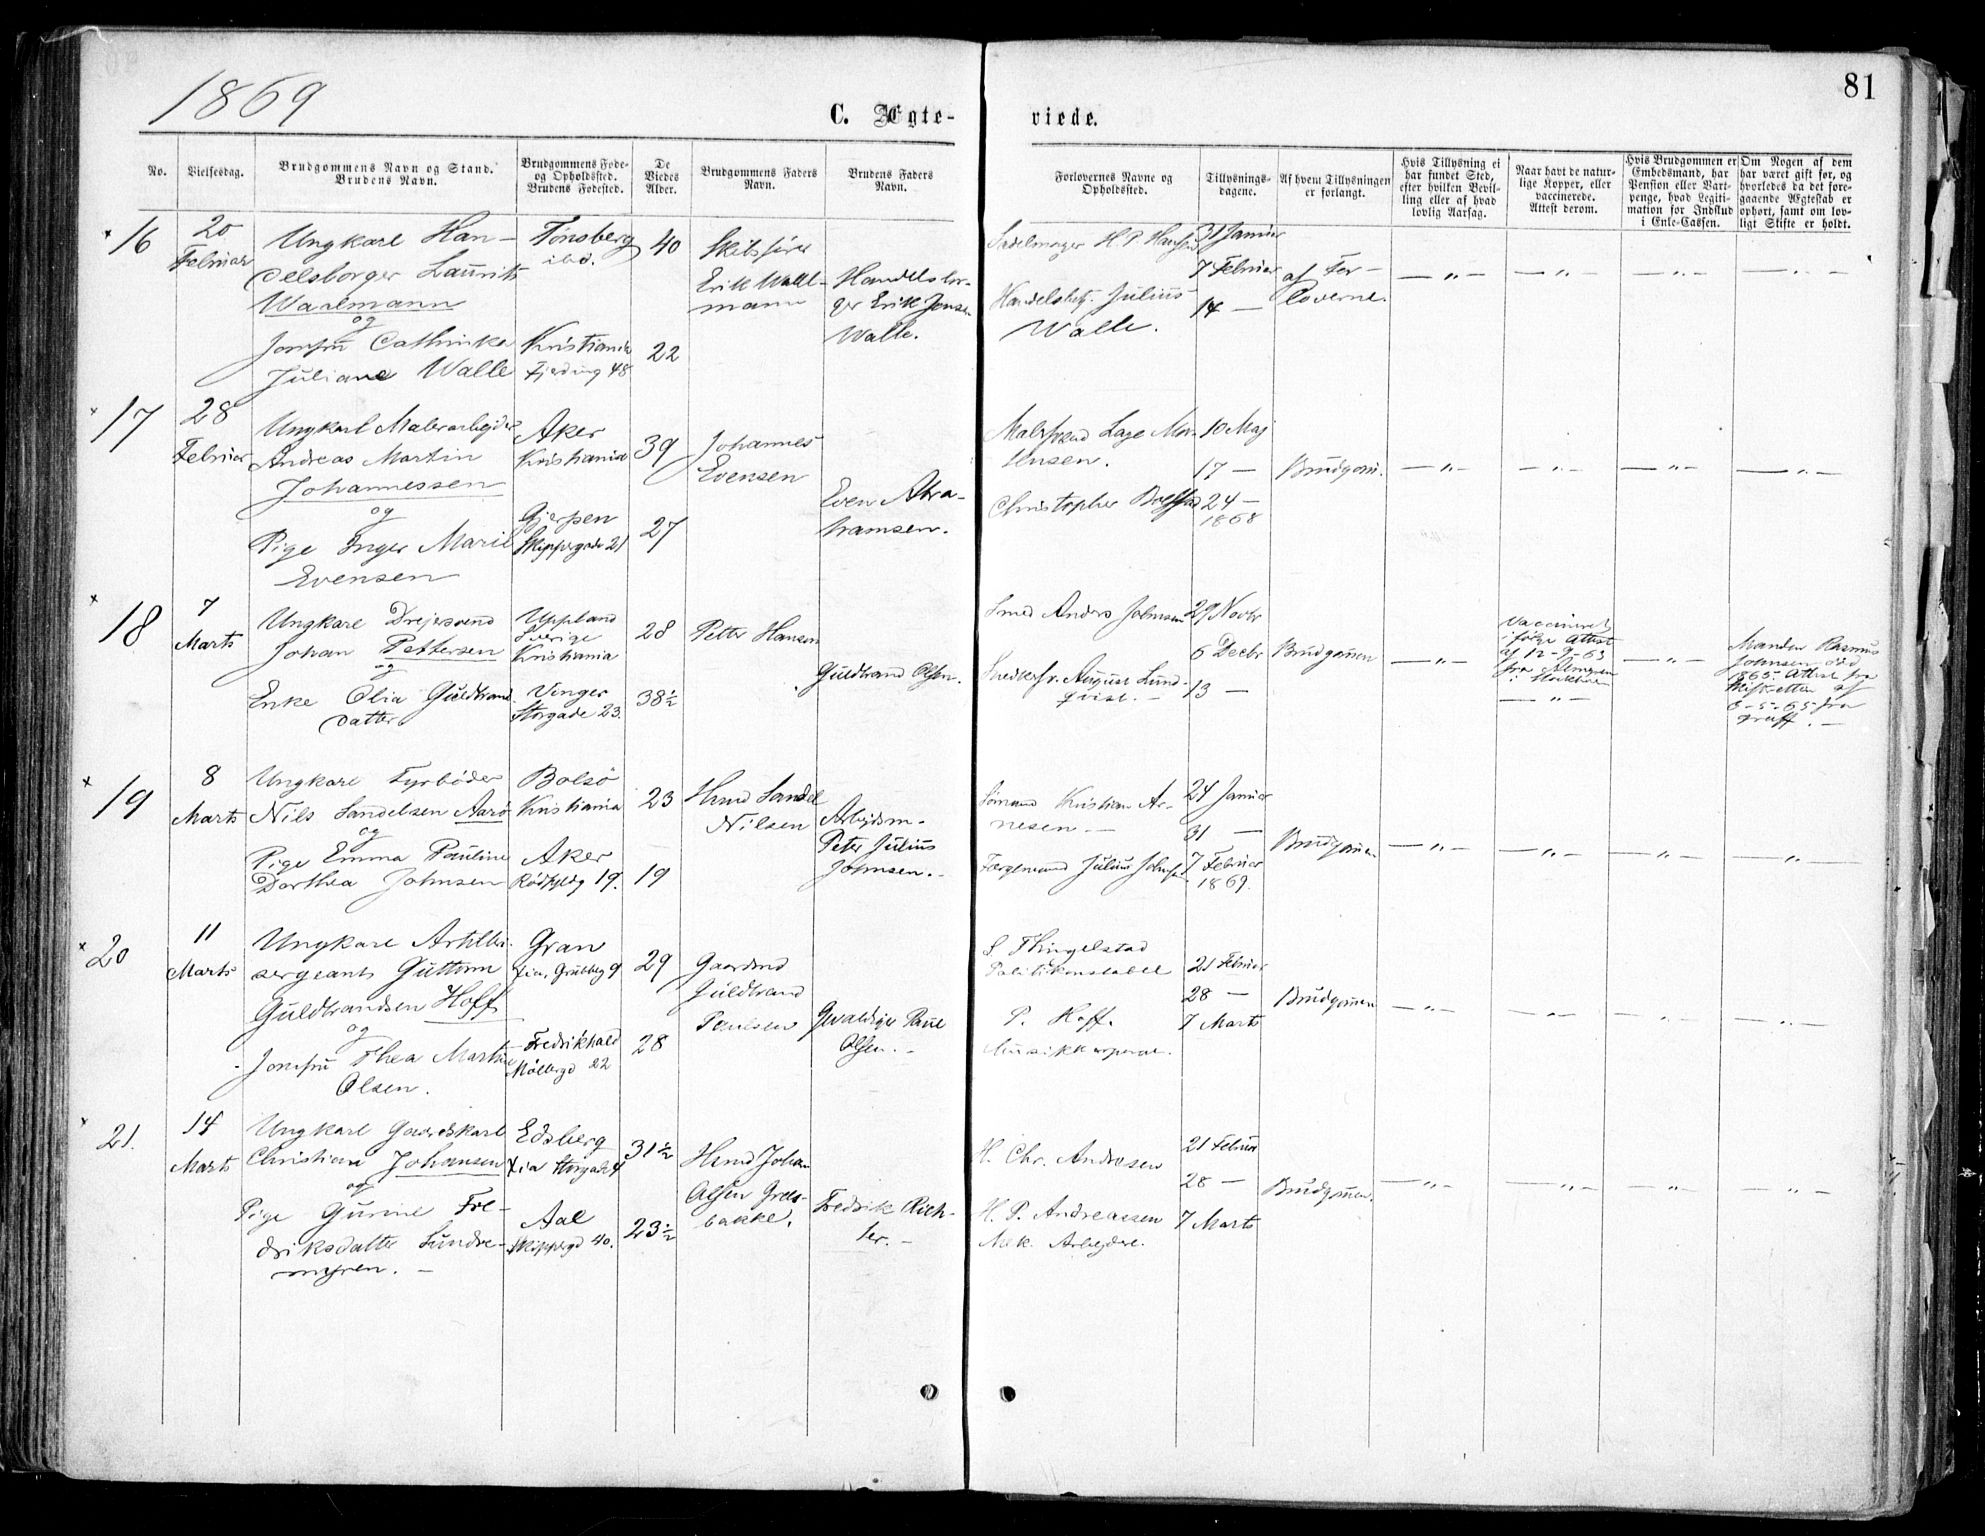 1869
81
C. Ægte-
viede.
No.
Vielsesdag.
Brudgommens Navn og Stand.
Brudens Navn.
Brudgommens Føde-
og Opholdssted.
Brudens Fødested.
De
Viedes
Alder.
Brudgommens Faders
Navn.
Brudens Faders
Navn.
Forlovernes Navne og
Opholdssted.
Tillysnings-
dagene.
Af hvem Tillysningen
er forlangt.
Hvis Tillysning ei
har fundet Sted,
efter hvilken Bevil-
ling eller af hvad
lovlig Aarsag.
Naar havt de natur-
lige Kopper, eller
vaccinerede.
Attest derom.
Hvis Brudgommen er
Embedsmand, har
Pension eller Vart-
penge, hvad Legiti-
mation for Indskud
i Enke-Cassen.
Om Nogen af dem
har været gift før, og
hvorledes da det fore-
gaaende Ægteskab er
ophørt, samt om lov-
ligt Skifte er holdt.
16
20
Februar
Ungkarl Han-
delsborger Laurits
Waalmann
og
Jomfru Cathinka
Juliane Walle
Tønsberg
ibd.
Kristiania
Fjerding 48
40
22
Skibsfører
Erik Waal-
mann
Handelsbor-
ger Erik Jensen
Walle.
Sadelmager H. P. Hansen
Handelsbetj. Julius
Walle.
31 Januar
7 Februar
14 —
af For-
loverne.
— „ —
— „ —
— „ —
— „ —
17
28
Februar
Ungkarl Malerarbejder
Andreas Martin
Johannessen
og
Pige Inger Marie
Evensen
Aker
Kristiania
Gjerpen
Skippergade 21
39
27
Johannes
Evensen
Even Abra-
hamsen.
Malersvend Lage Mor-
tensen.
Christopher
10 Maj
17 —
24 —
1868
Brudgom.
— „ —
— „ —
— „ —
— „ —
18
7
Marts
Ungkarl Drejersvend
Johan Pettersen
og
Enke Olia Guldbrand
datter
Uppland
Sverige
Kristiania
Vinger
Storgade 23.
28
38½
Petter Hansen
Guldbrand Olsen.
Smed Anders Johnsen
Snedkersv. August Lund-
qvist. —
29 Novbr
6 Decbr
13 —
Brudgomen
— „ —
Vaccineret
ifølge Attest
af 12-9-63
fra Almgren
i
— „ —
— „ —
Manden Rasmus
Johnsen død
1865. Attest fra
Skifteretten af
8-5-65 fra
Graff. —
19
8
Marts
Ungkarl Fyrbøder
Nils Sandelsen Aarø
og
Pige Emma Pauline
Dorthea Johnsen
Bolsø
Kristiania
Aker
Rødfyldg 19.
23
19
Hmd Sandel
Nilsen
Arbejdsm.
Peter Julius
Johnsen. -
Sømand Kristian Ar-
nesen. —
Færgemand Julius Johnsen
24 Januar
31 —
7 Februar
1869.
Brudgomen
— „ —
— „ —
— „ —
— „ —
20
11
Marts
Ungkarl Artilleri-
sergeant Guttorm
Guldbrandsen Hoff
og
Jomfru Thea Martine
Olsen.
Gran
Xia, Grubbeg 9
Fredrikhald
Møllergd 22
29
28
Gaardmd
Guldbrand
Paulsen
Gevaldiger Paul
Olsen. -
S. Thingelstad
Politikonstabel
P. Hoff.
Musikkorporal.
21 Februar
28 —
7 Marts
Brudgomen
— „ —
— „ —
— „ —
— „ —
21.
14
Marts
Ungkarl Gaardskarl
Christian Johansen
og
Pige Gurine Fre-
driksdatter Lundre-
myren. —
Edsberg
Xia Storgade 4
Aal
Skippergd 40.
31½
23½
Hmd Johan
Olsen
bakke.
Fredrik Rich-
ter. -
H. Chr. Andresen
H. P. Andreassen
Mek. Arbejdere.
21 Februar
28 —
7 Marts
Brudgomen.
— „ —
— „ —
— „ —
— „ —